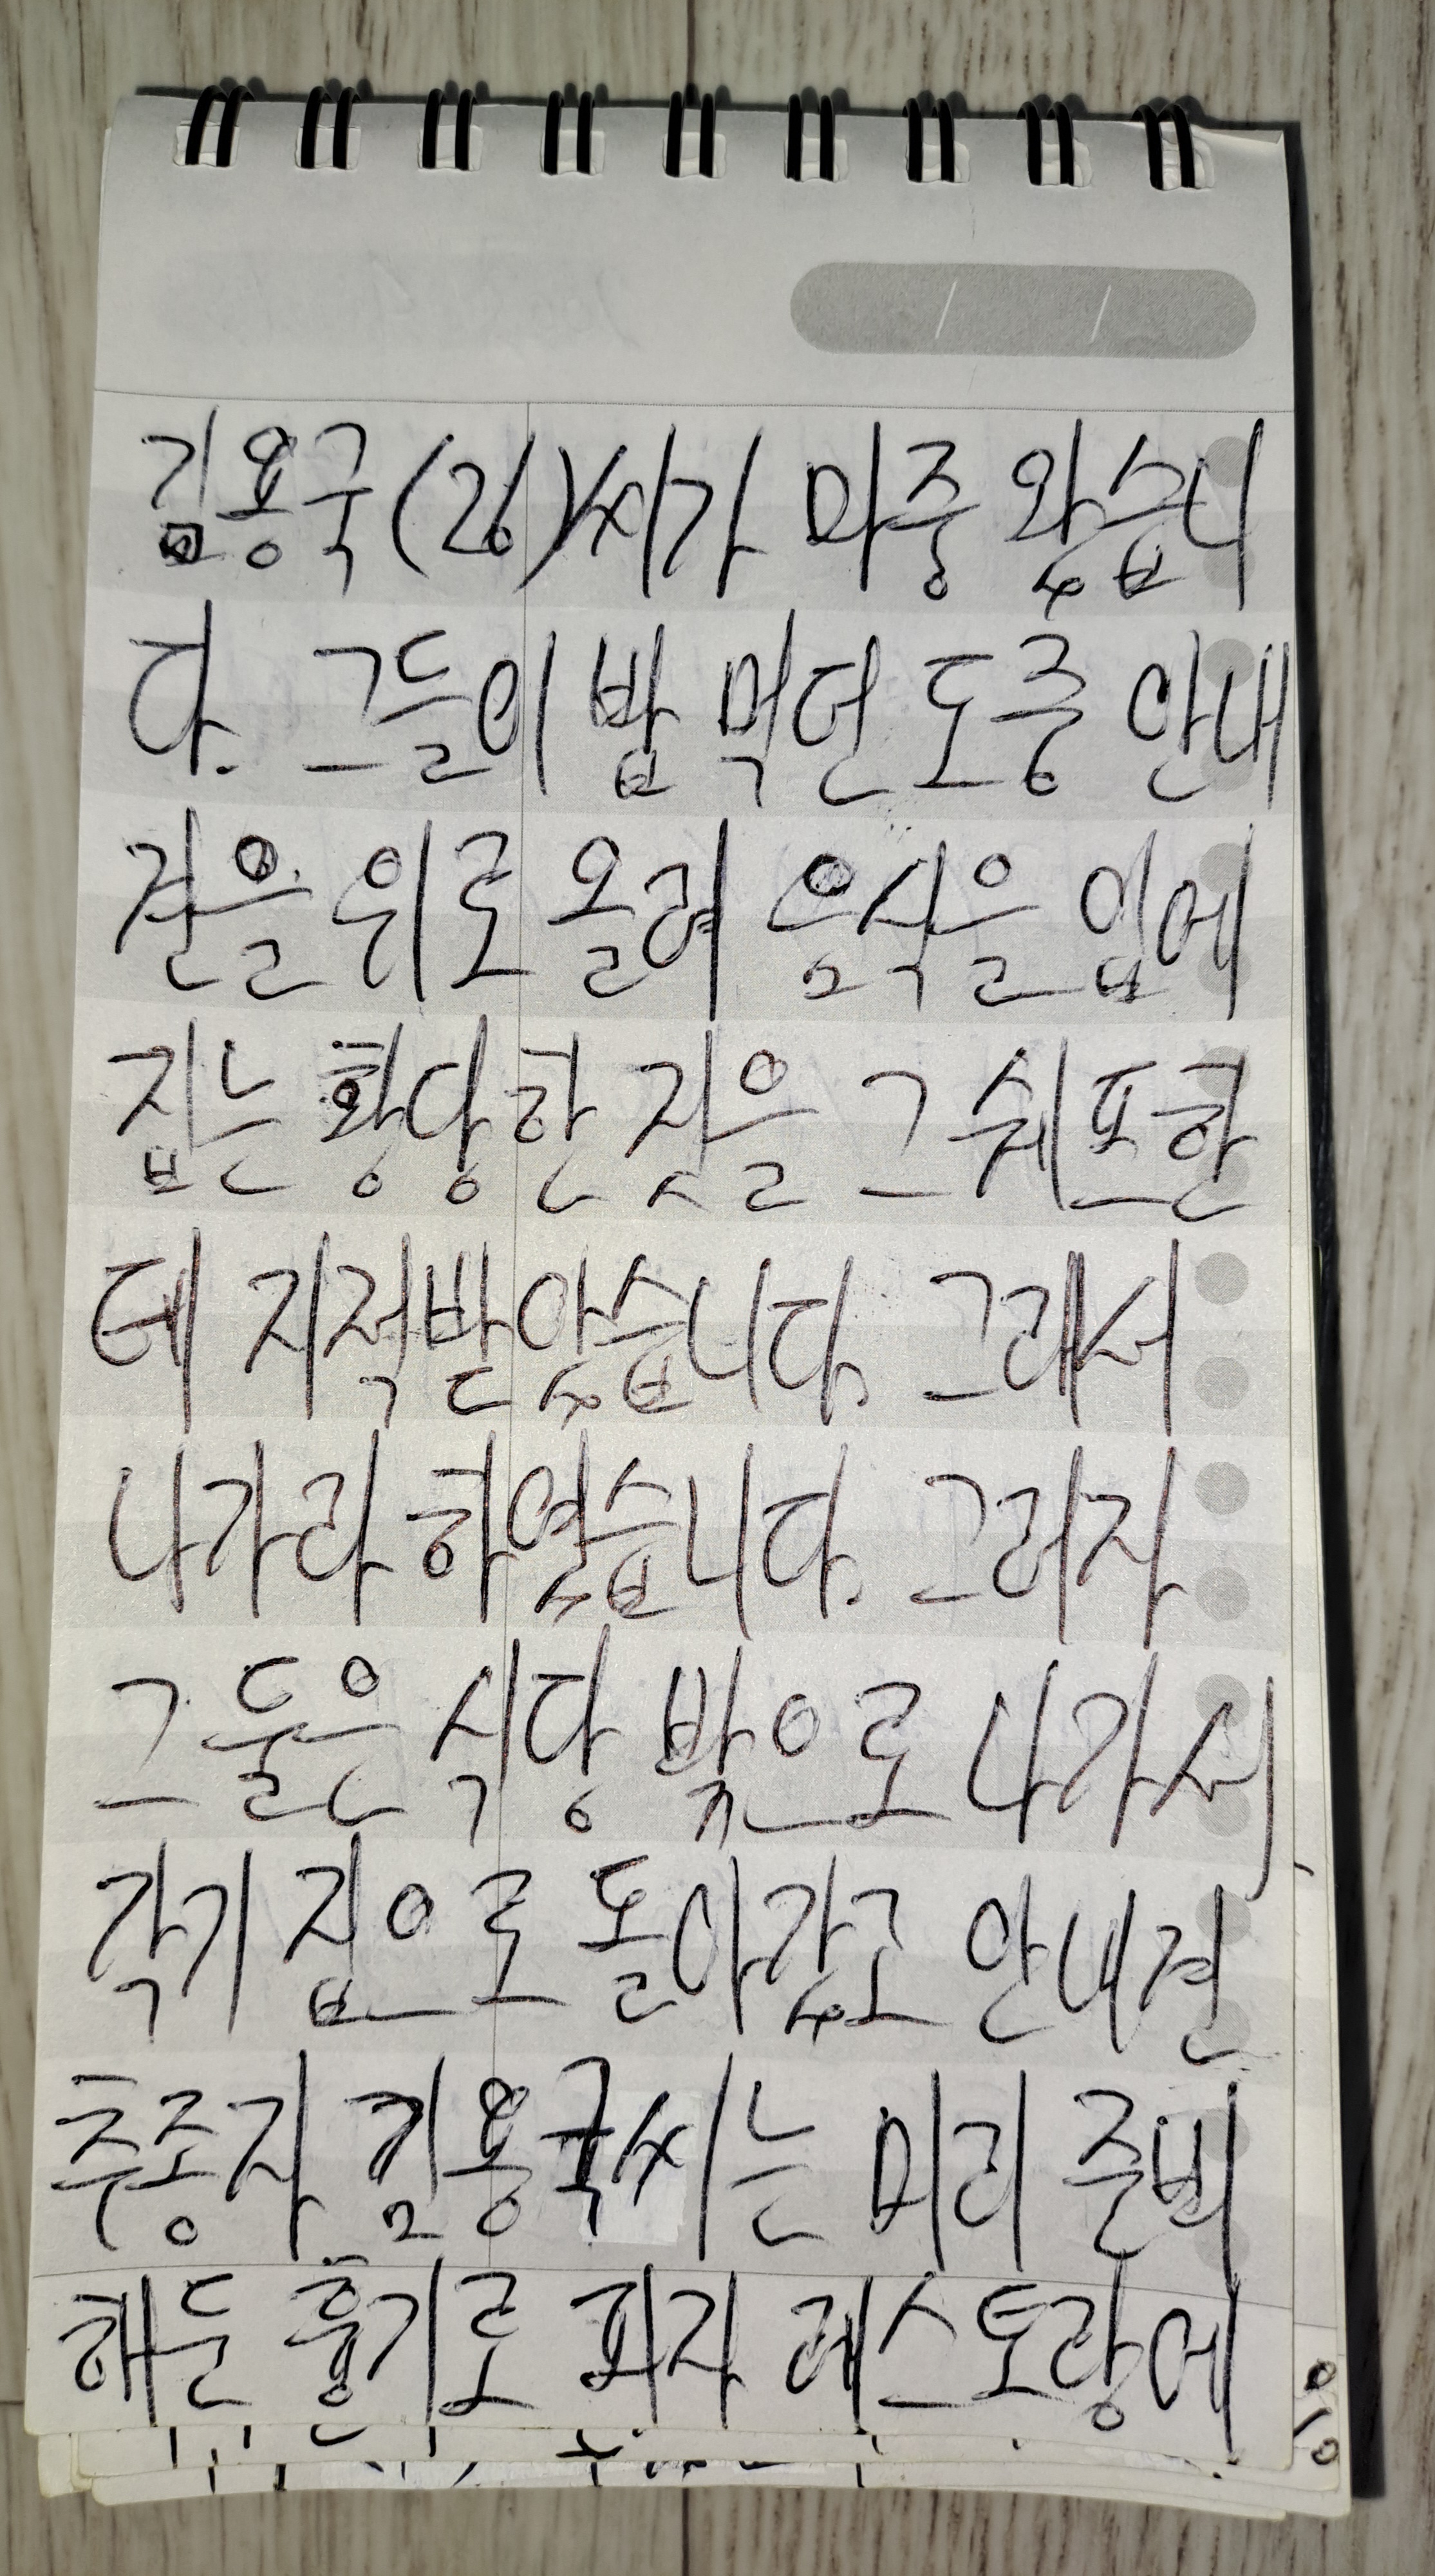 김용국(26)씨가 마중 왔습니
다. 그들이 밥 먹던 도중 안내
견을 위로 올려 음식을 입에
집는 황당한 짓을 그 쉐프한
테 지적받았습니다. 그래서
나가라 하였습니다. 그러자
그들은 식당 밖으로 나가서
각기 집으로 돌아갔고 안내견
추종자 김용국씨는 미리 준비
해둔 흉기로 피자 레스토랑에